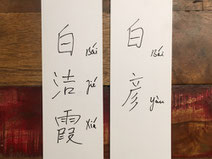 白 Bái
洁 jié
霞 Xiá
白 Bái
彦 yàn